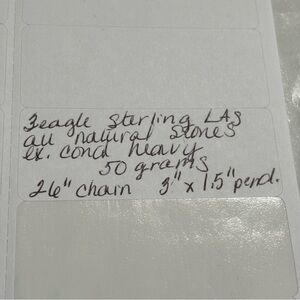 3eagle sterling LAS
all natural stones
ex. cond heavy
50 grams
26" chain 3" x 1.5" pend.